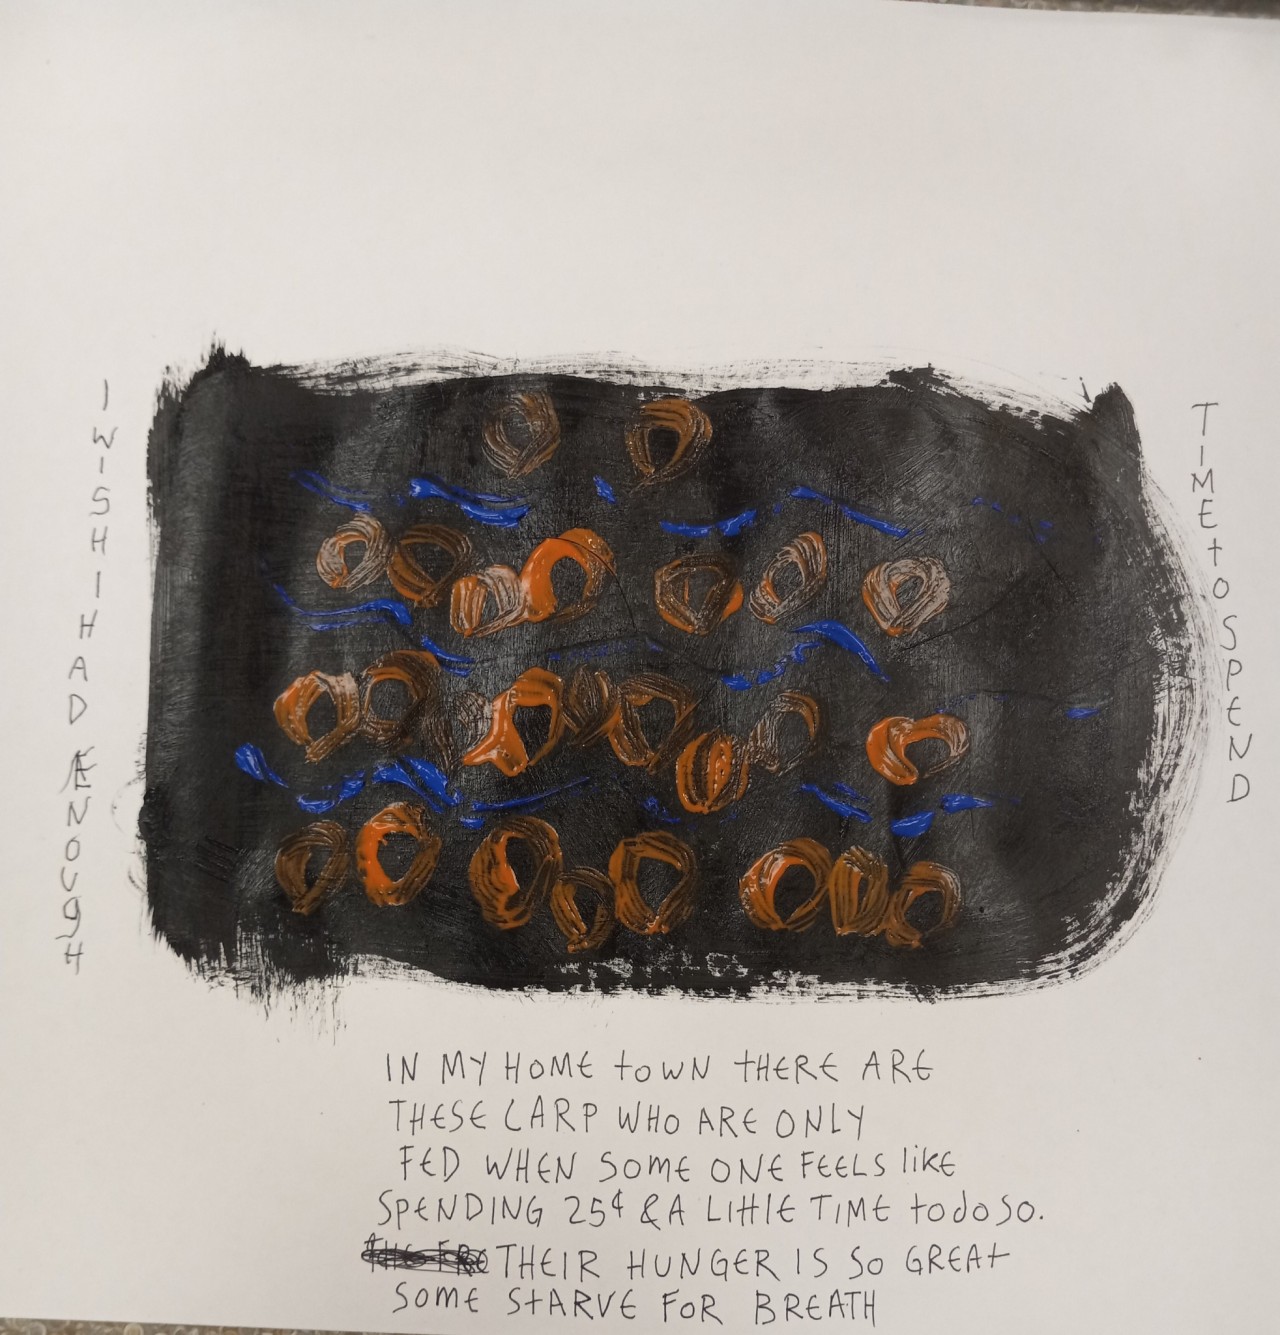 I WISH I HAD ENOUGH
TIME to SPEND
IN MY HOME toWN tHERE ARE
THESE CARP WHO ARE ONLY
FED WHEN SOME ONE FEELS liKE
SPENDING 25¢ & A LIttlE TIME to do so.
THEIR HUNGER IS SO GREAt
SOME StARVE FOR BREATH